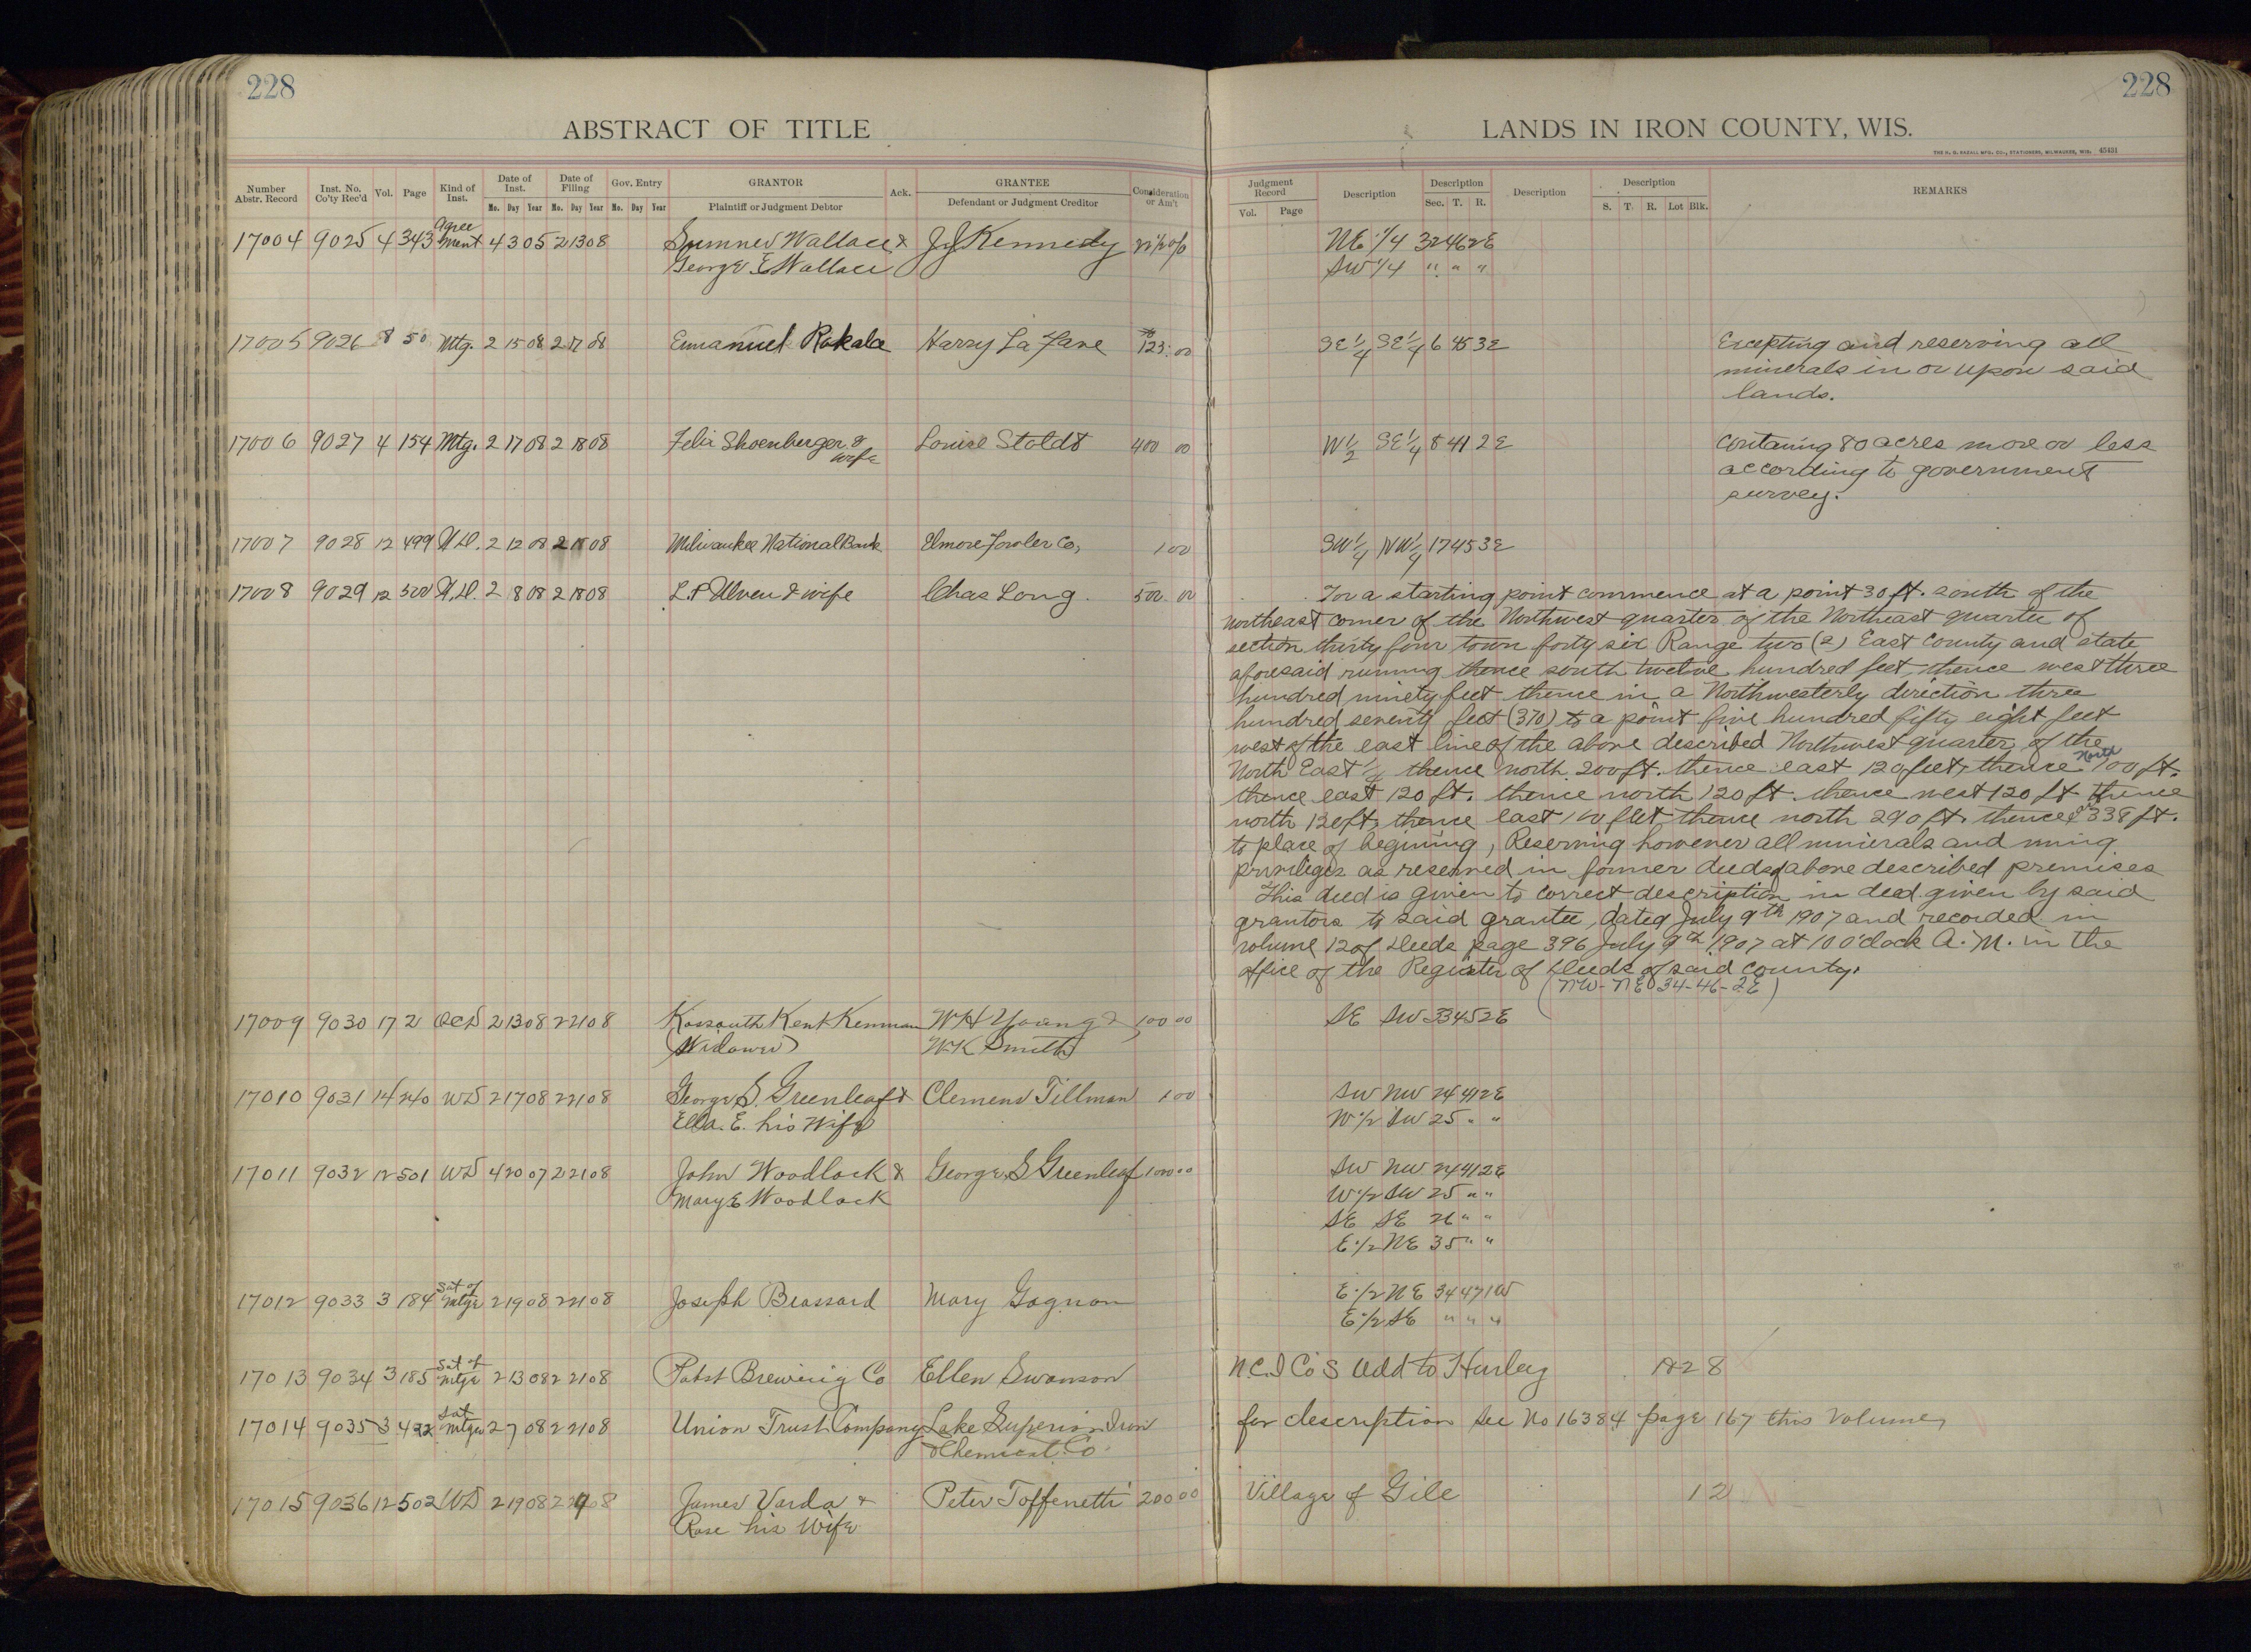 228
228
ABSTRACT OF TITLE
LANDS IN IRON COUNTY, WIS.
THE H. G. RAZALL MFG. CO., STATIONERS, MILWAUKEE, WIS. 45431
Number Abstr. Record Inst. No. Co'ty Rec'd Vol. Page Kind of Inst. Date of Inst. Mo. Day Year Date of Filing Mo. Day Year Gov. Entry Mo. Day Year GRANTOR Plaintiff or Judgment Debtor Ack. GRANTEE Defendant or Judgment Creditor Consideration or Am't
Judgment Record Vol. Page Description Description Sec. T. R. Description Description S. T. R. Lot Blk. REMARKS
17004 9025 4 343 Agreement 4 3 05 2 13 08 Sumner Wallace & J J Kennedy NE 1/4 32 46 2E
George E Wallace SW 1/4 " " "
17005 9026 8 50 Mtg. 2 15 08 2 17 08 Emanuel Rakala Harry La Fave 125.00 SE 1/4 SE 1/4 6 45 3E Excepting and reserving all
minerals in or upon said
lands.
17006 9027 4 154 Mtg. 2 17 08 2 18 08 Felix Shoenberger & wife Louise Stoldt 400 00 W 1/2 SE 1/4 8 41 2E Contaning 80 acres more or less
according to government
survey.
17007 9028 12 499 W.D. 2 12 08 2 18 08 Milwaukee National Bank Elmore Fowler Co, 1 00 SW 1/4 NW 1/4 17 45 3E
17008 9029 12 500 W.D. 2 8 08 2 18 08 L.P Ulven & wife Chas Long. 500 00 For a starting point commence at a point 30 ft. south of the
northeast corner of the Northwest quarter of the Northeast quarter of
section thirty four town forty six Range two (2) East County and state
aforesaid running thence south twelve hundred feet, thence west three
hundred ninety feet thence in a Northwesterly direction three
hundred seventy feet (370) to a point five hundred fifty eight feet
west of the east line of the above described Northwest quarter of the
North East 1/4 thence north 200 ft. thence east 120 feet, thence North 100 ft.
thence east 120 ft. thence north 120 ft. thence west 120 ft thence
north 120 ft, thence east 100 feet, thence north 290 ft. thence 338 ft.
to place of begining, Reserving however all minerals and mining
privileges as reserved in former deeds of above described premises
This deed is given to correct description in deed given by said
grantors to said grantee, dated July 9th 1907 and recorded in
volume 12 of Deeds page 396 July 9th 1907 at 10 O'clock A.M. in the
office of the Register of Deeds of said County.
(NW-NE 34-46-2E)
17009 9030 17 2 QCD 2 13 08 2 21 08 Kossouth Kent Kennan WH Young & 100 00 SE SW 33 45 2E
(Widower) WK Smith
17010 9031 14 240 WD 2 17 08 2 21 08 George S. Greenleaf & Clemens Tillman 1 00 SW NW 24 41 2E
Ella. E. his Wife W 1/2 SW 25 " "
17011 9032 12 501 WD 4 20 07 2 21 08 John Woodlock & George S Greenleaf 1000 00 SW NW 24 41 2E
Mary E Woodlock W 1/2 SW 25 " "
SE SE 26 " "
E 1/2 NE 35 " "
17012 9033 3 184 Sat of Mtge 2 19 08 2 21 08 Joseph Brassard Mary Gagnon E 1/2 NE 34 47 1W
E 1/2 SE " " "
17013 9034 3 185 Sat of Mtge 2 13 08 2 21 08 Pabst Brewing Co Ellen Swanson N.C.I Co's Add to Hurley 18 28
17014 9035 3 422 Sat Mtge 2 7 08 2 21 08 Union Trust Company Lake Superior Iron for description see No 16384 page 167 this Volume,
& Chemical Co.
17015 9036 12 502 WD 2 19 08 2 08 James Varda & Peter Toffenetti 200 00 Village of Gile 1 2
Rose his Wife